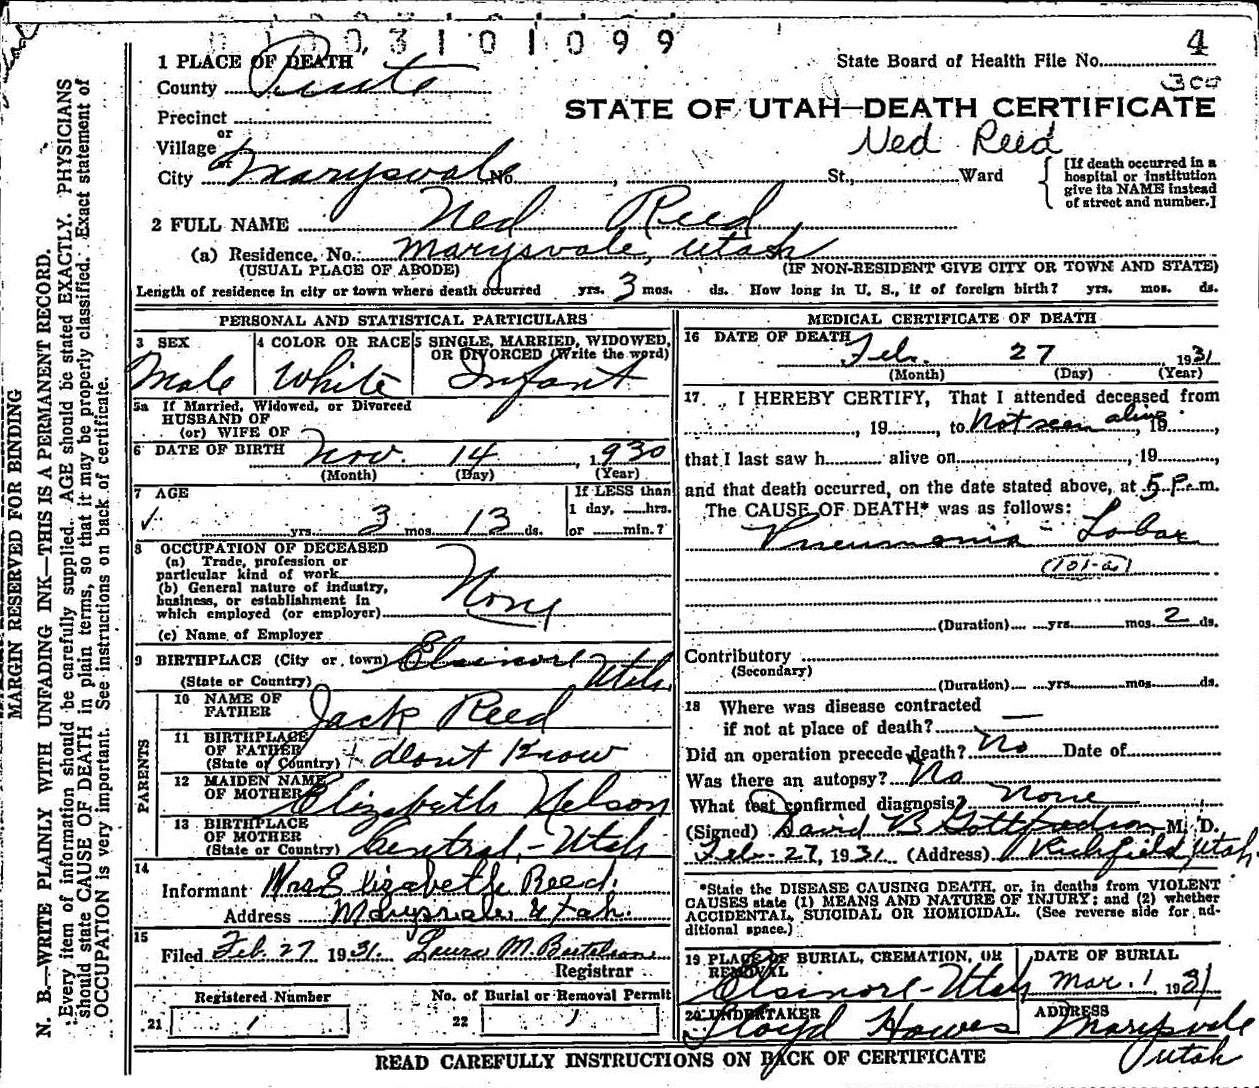 0 1 0 0 3 1 0 1 0 9 9
4
1 PLACE OF DEATH
State Board of Health File No.
300
County Piute
STATE OF UTAH—DEATH CERTIFICATE
Precinct
or
Ned Reed
Village
or
City Marysvale No. , St., Ward
[If death occurred in a hospital or institution give its NAME instead of street and number.]
2 FULL NAME Ned Reed
(a) Residence. No. Marysvale, Utah
(USUAL PLACE OF ABODE) (IF NON-RESIDENT GIVE CITY OR TOWN AND STATE)
Length of residence in city or town where death occurred yrs. 3 mos. ds. How long in U. S., if of foreign birth? yrs. mos. ds.
PERSONAL AND STATISTICAL PARTICULARS
3 SEX Male
4 COLOR OR RACE White
5 SINGLE, MARRIED, WIDOWED, OR DIVORCED (Write the word) Infant
5a If Married, Widowed, or Divorced
HUSBAND OF
(or) WIFE OF
6 DATE OF BIRTH Nov. 14, 1930
(Month) (Day) (Year)
7 AGE
✓ yrs. 3 mos. 13 ds.
If LESS than
1 day, hrs.
or min.?
8 OCCUPATION OF DECEASED
(a) Trade, profession or
particular kind of work
(b) General nature of industry,
business, or establishment in
which employed (or employer) None
(c) Name of Employer
9 BIRTHPLACE (City or town) Elsinore
(State or Country) Utah
PARENTS
10 NAME OF FATHER Jack Reed
11 BIRTHPLACE OF FATHER
(State or Country) dont Know
12 MAIDEN NAME OF MOTHER Elizabeth Nelson
13 BIRTHPLACE OF MOTHER
(State or Country) Central - Utah
14
Informant Mrs Elizabeth Reed
Address Marysvale Utah.
15
Filed Feb. 27 1931. Laura M.
Registrar
Registered Number
21 1
No. of Burial or Removal Permit
22 1
MEDICAL CERTIFICATE OF DEATH
16 DATE OF DEATH Feb. 27 1931
(Month) (Day) (Year)
17. I HEREBY CERTIFY, That I attended deceased from
, 19 , to Not seen alive, 19 ,
that I last saw h alive on , 19 ,
and that death occurred, on the date stated above, at 5 P. m.
The CAUSE OF DEATH* was as follows:
Pneumonia - Lobar
(101-a)
(Duration) yrs. mos. 2 ds.
Contributory
(Secondary)
(Duration) yrs. mos. ds.
18 Where was disease contracted
if not at place of death? —
Did an operation precede death? No Date of
Was there an autopsy? No
What test confirmed diagnosis? None
(Signed) David B Gottfredson M. D.
Feb. 27, 1931 (Address) Richfield, Utah
*State the DISEASE CAUSING DEATH, or, in deaths from VIOLENT
CAUSES state (1) MEANS AND NATURE OF INJURY; and (2) whether
ACCIDENTAL, SUICIDAL OR HOMICIDAL. (See reverse side for ad-
ditional space.)
19 PLACE OF BURIAL, CREMATION, OR REMOVAL
Elsinore - Utah
DATE OF BURIAL
Mar. 1 1931
20 UNDERTAKER
Lloyd Howes
ADDRESS
Marysvale
Utah
READ CAREFULLY INSTRUCTIONS ON BACK OF CERTIFICATE
MARGIN RESERVED FOR BINDING
N. B.—WRITE PLAINLY WITH UNFADING INK—THIS IS A PERMANENT RECORD.
Every item of information should be carefully supplied. AGE should be stated EXACTLY. PHYSICIANS
should state CAUSE OF DEATH in plain terms, so that it may be properly classified. Exact statement of
OCCUPATION is very important. See instructions on back of certificate.